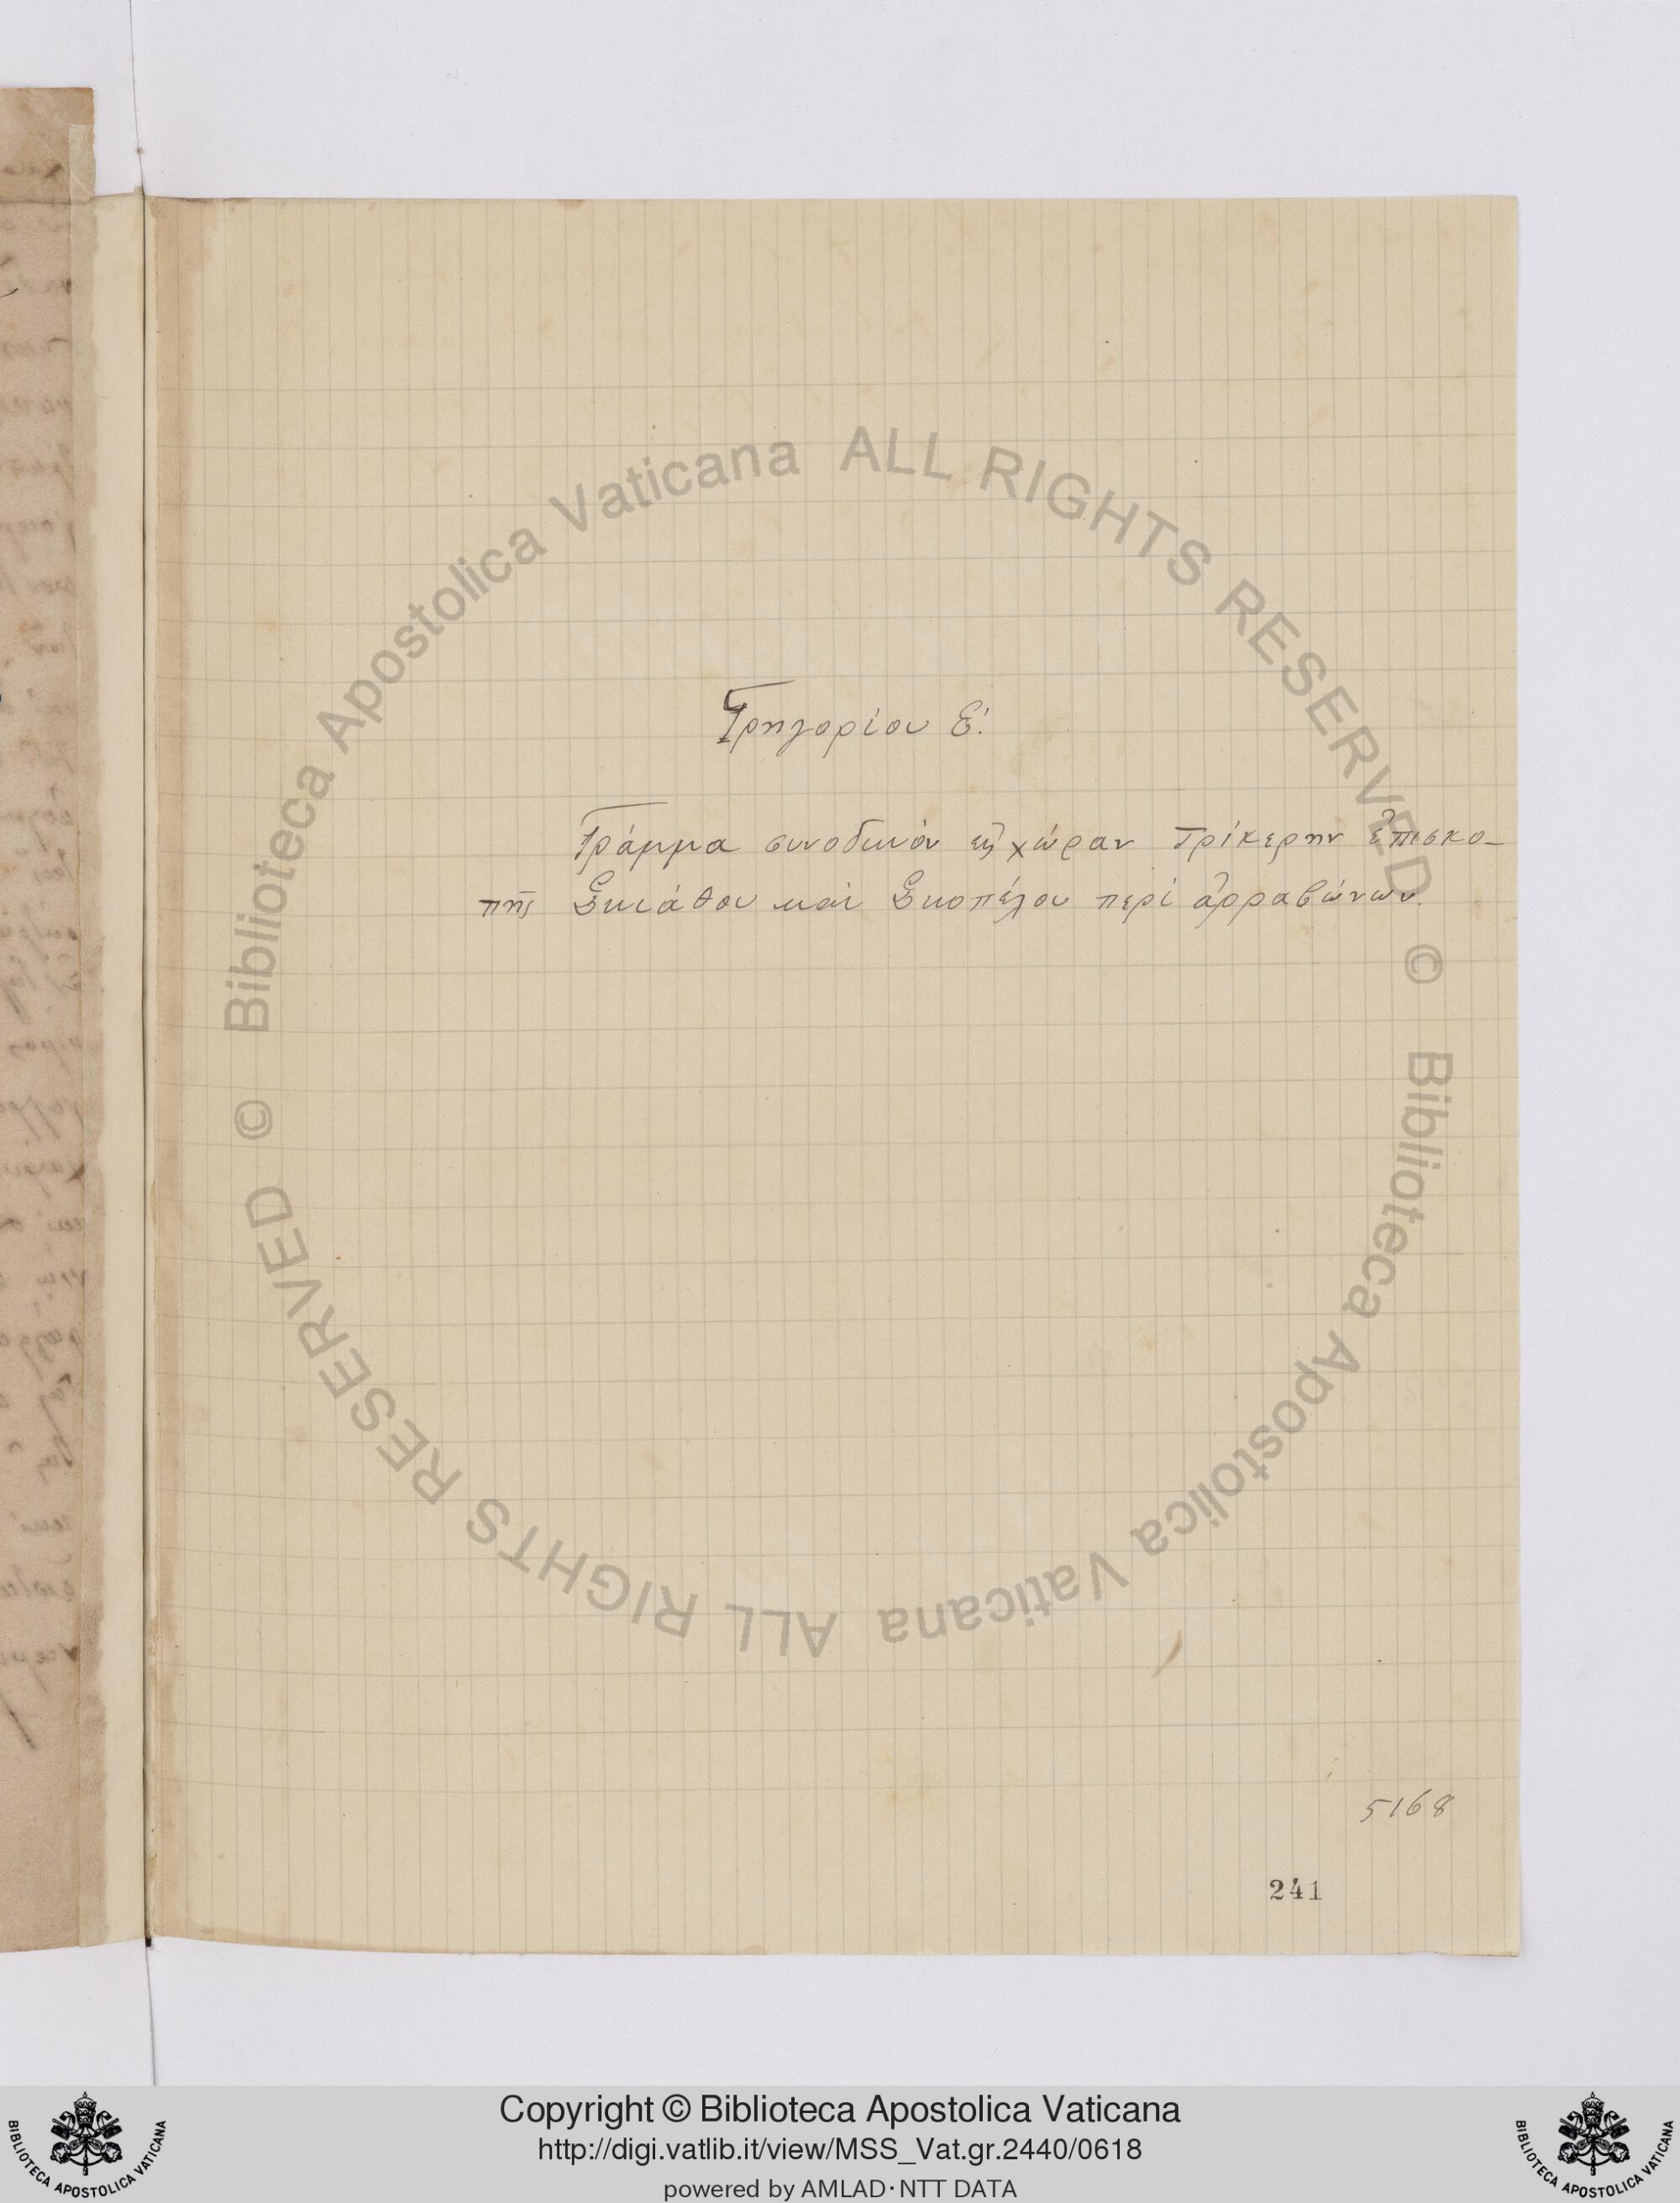 Γρηγορίου Ε΄.
Γράμμα συνοδικὸν εἰς χώραν Τρίκερην ἐπισκο-
πῆς Σκιάθου καὶ Σκοπέλου περὶ ἀρραβώνων.
5168
241
Biblioteca Apostolica Vaticana ALL RIGHTS RESERVED ©
Biblioteca Apostolica Vaticana ALL RIGHTS RESERVED ©
Copyright © Biblioteca Apostolica Vaticana
http://digi.vatlib.it/view/MSS_Vat.gr.2440/0618
powered by AMLAD·NTT DATA
BIBLIOTECA APOSTOLICA VATICANA
BIBLIOTECA APOSTOLICA VATICANA